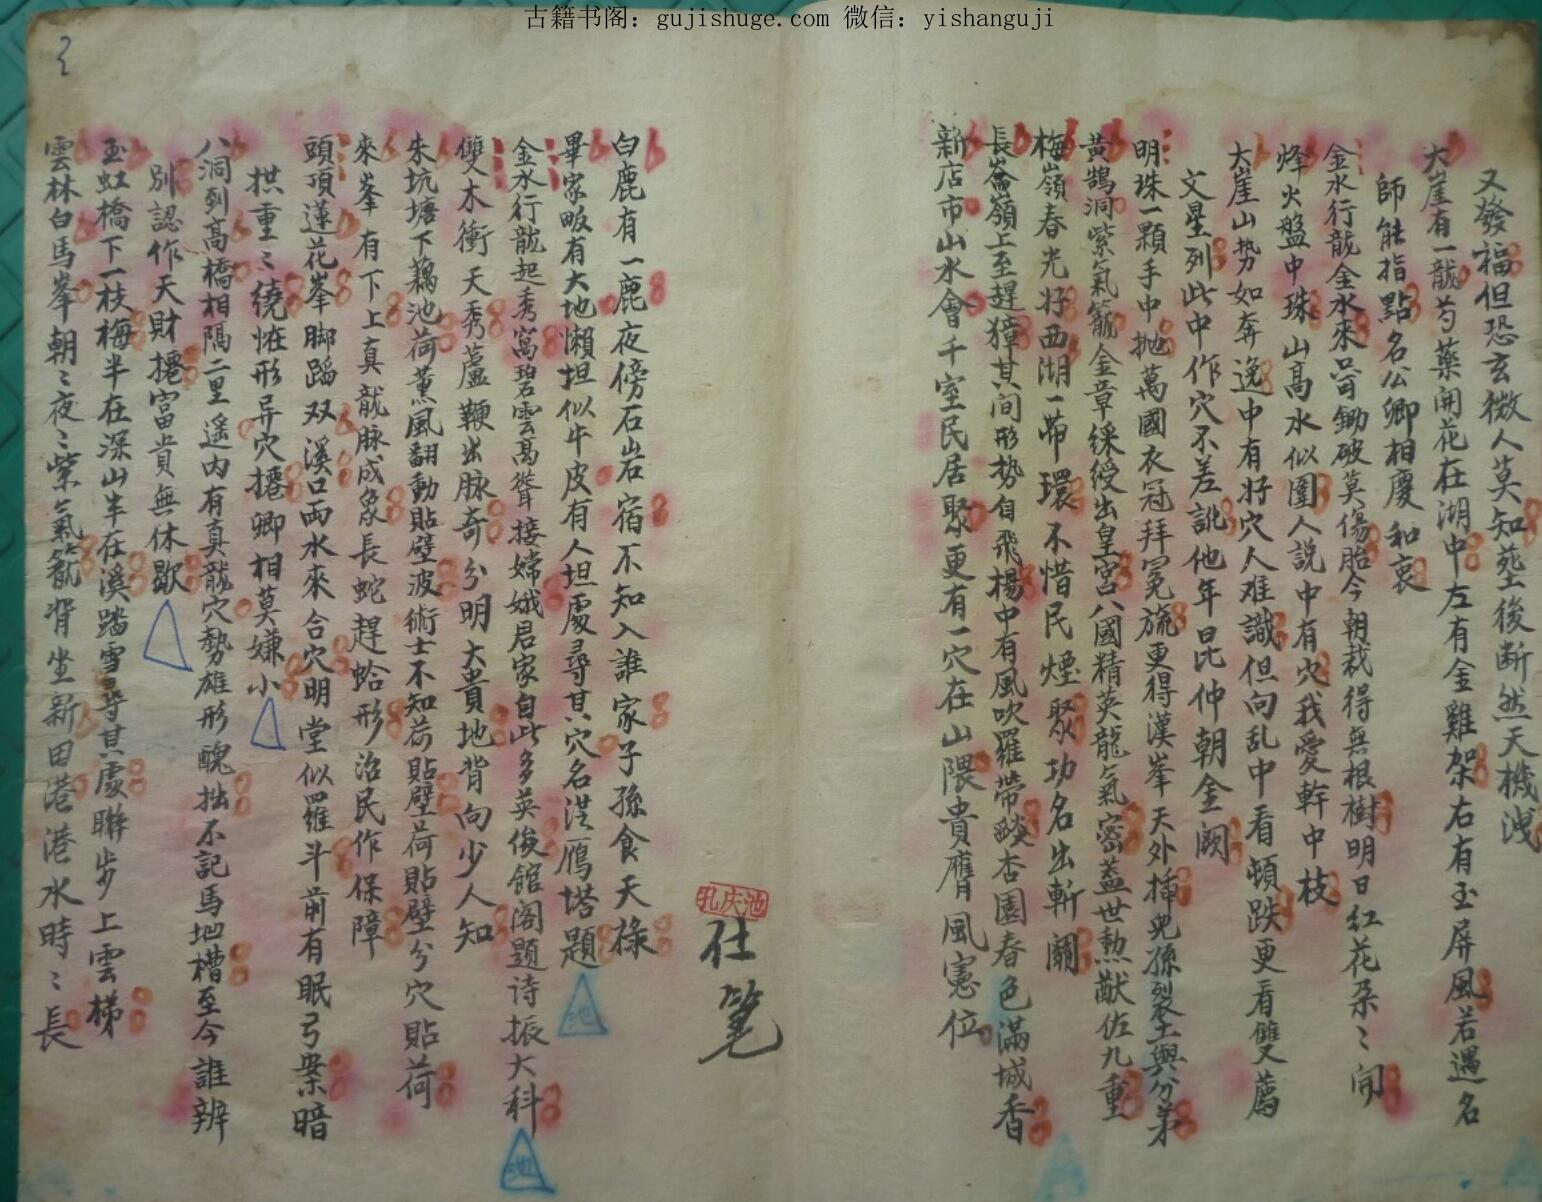 古籍书阁：gujishuge.com 微信：yishanguji
又發福但恐玄微人莫知塟後断然天機洩
大崖有一龍芍藥開花在湖中左有金雞架右有玉屏風若遇名
師能指點名公卿相慶和衷
金水行龍金水來 鋤破莫傷胎今朝栽得無根樹明日紅花朵〻開
烽火盤中珠山高水似圍人説中有穴我愛斡中枝
大崖山势如奔逸中有好穴人难識但向乱中看頓跌更看雙薦
文星列此中作穴不差訛他年昆仲朝金阙
明珠一顆手中抛萬國衣冠拜冕旒更得漢峯天外挿兒孫裂土與分茅
黃鵠洞紫氣籠金章綵绶出皇宫八國精英龍氣密蓋世勲猷佐九重
梅嶺春光好西湖一带環不惜民煙聚功名出斬關
長崙嶺上至趕獐其间形势自飛楊中有風吹羅带 杏園春色滿城香
新店市山水會千室民居聚更有一穴在山隈貴膺風憲位
池庆九
仕筆
白鹿有一鹿夜傍石岩宿不知入誰家子孫食天禄
畢家畈有大地懶坦似牛皮有人坦處尋其穴名汢鴈塔題
地
金水行龍起秀窩碧雲高聳接嫦娥君家自此多英俊館阁題诗振大科
地
雙木衝天秀蘆鞭出脉奇分明大貴地背向少人知
朱坑塘下藕池荷薰風翻動貼壁波術士不知荷貼壁荷貼壁兮穴貼荷
來峯有下上真龍脉成象長蛇趕蛤形治民作保障
頭頂蓮花峯脚踏双溪口両水來合穴明堂似羅斗前有眠弓案暗
拱重〻繞恠形异穴擡卿相莫嫌小
八洞到高橋相隔二里遥内有真龍穴勢雄形醜拙不記馬地槽至今誰辨
別認作天財擡富貴無休歇
玉虹橋下一枝梅半在深山半在溪踏雪尋其處聯步上雲梯
雲林白馬峯朝〻夜〻紫氣籠背坐新田港港水時〻長